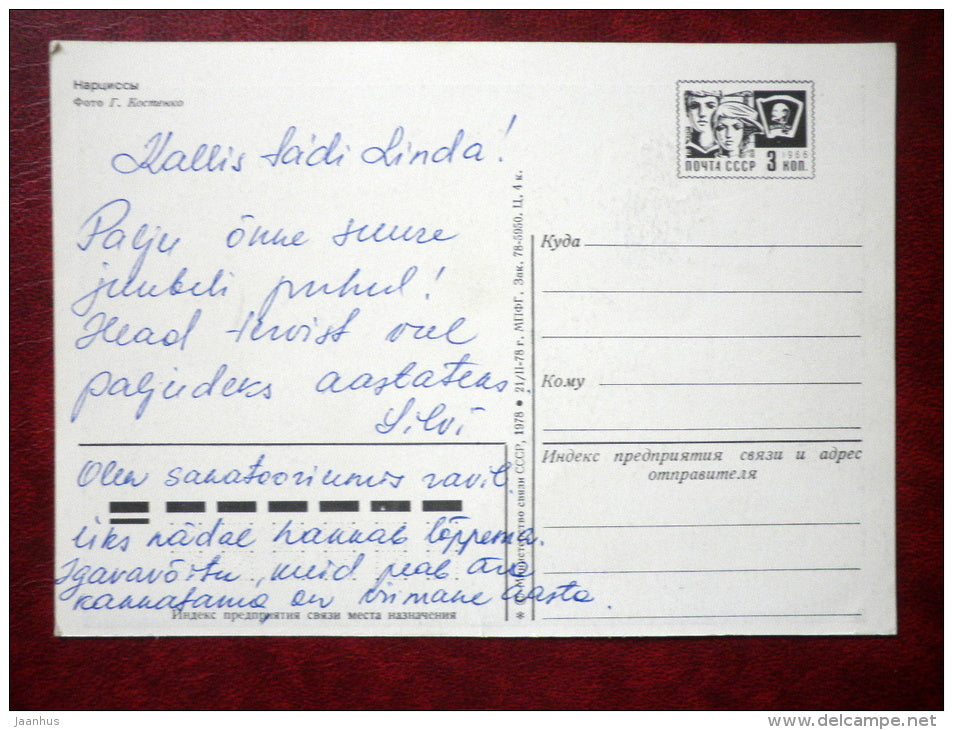 Нарциссы
Фото Г. Костенко
Kallis tädi Linda!
Palju õnne suure
juubeli puhul!
Head tervist veel
paljudeks aastateks.
Silvi
Olen sanatooriumis ravil.
üks nädal hakkab lõppema.
Igavavõitu, meid peab ära
kannatama, on viimane aasta.
Индекс предприятия связи места назначения
* © Министерство связи СССР, 1978 ● 21/II-78 г. МПФГ. Зак. 78-5950. Ц. 4 к.
1966
ПОЧТА СССР 3 КОП.
Куда
Кому
Индекс предприятия связи и адрес
отправителя
Jaanhus
www.delcampe.net